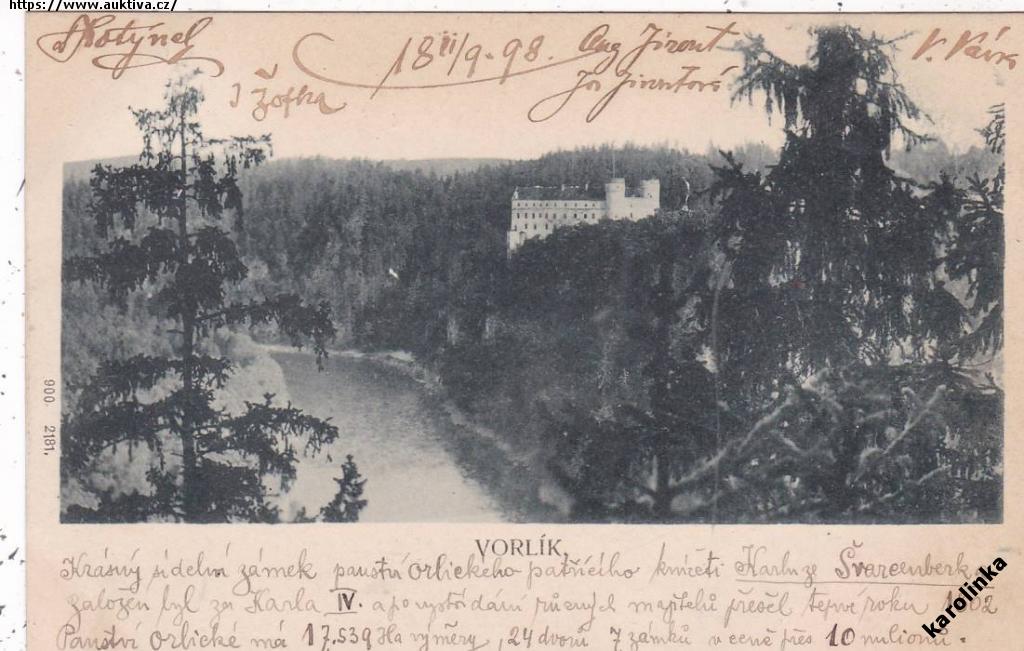 https://www.auktiva.cz/
18 9. 98. Aug Jirout
J Žofka
900 2181,
VORLÍK,
Krásný sídelní zámek panství Orlického patřícího knížeti Karlu ze Švarcenberka
založen byl za Karla IV. a po vystřídání různých majitelů přešel teprvé roku
Panství Orlické má 17.539 Ha výměry, 24 dvorů 7 zámků v ceně přes 10 milionů.
karolinka